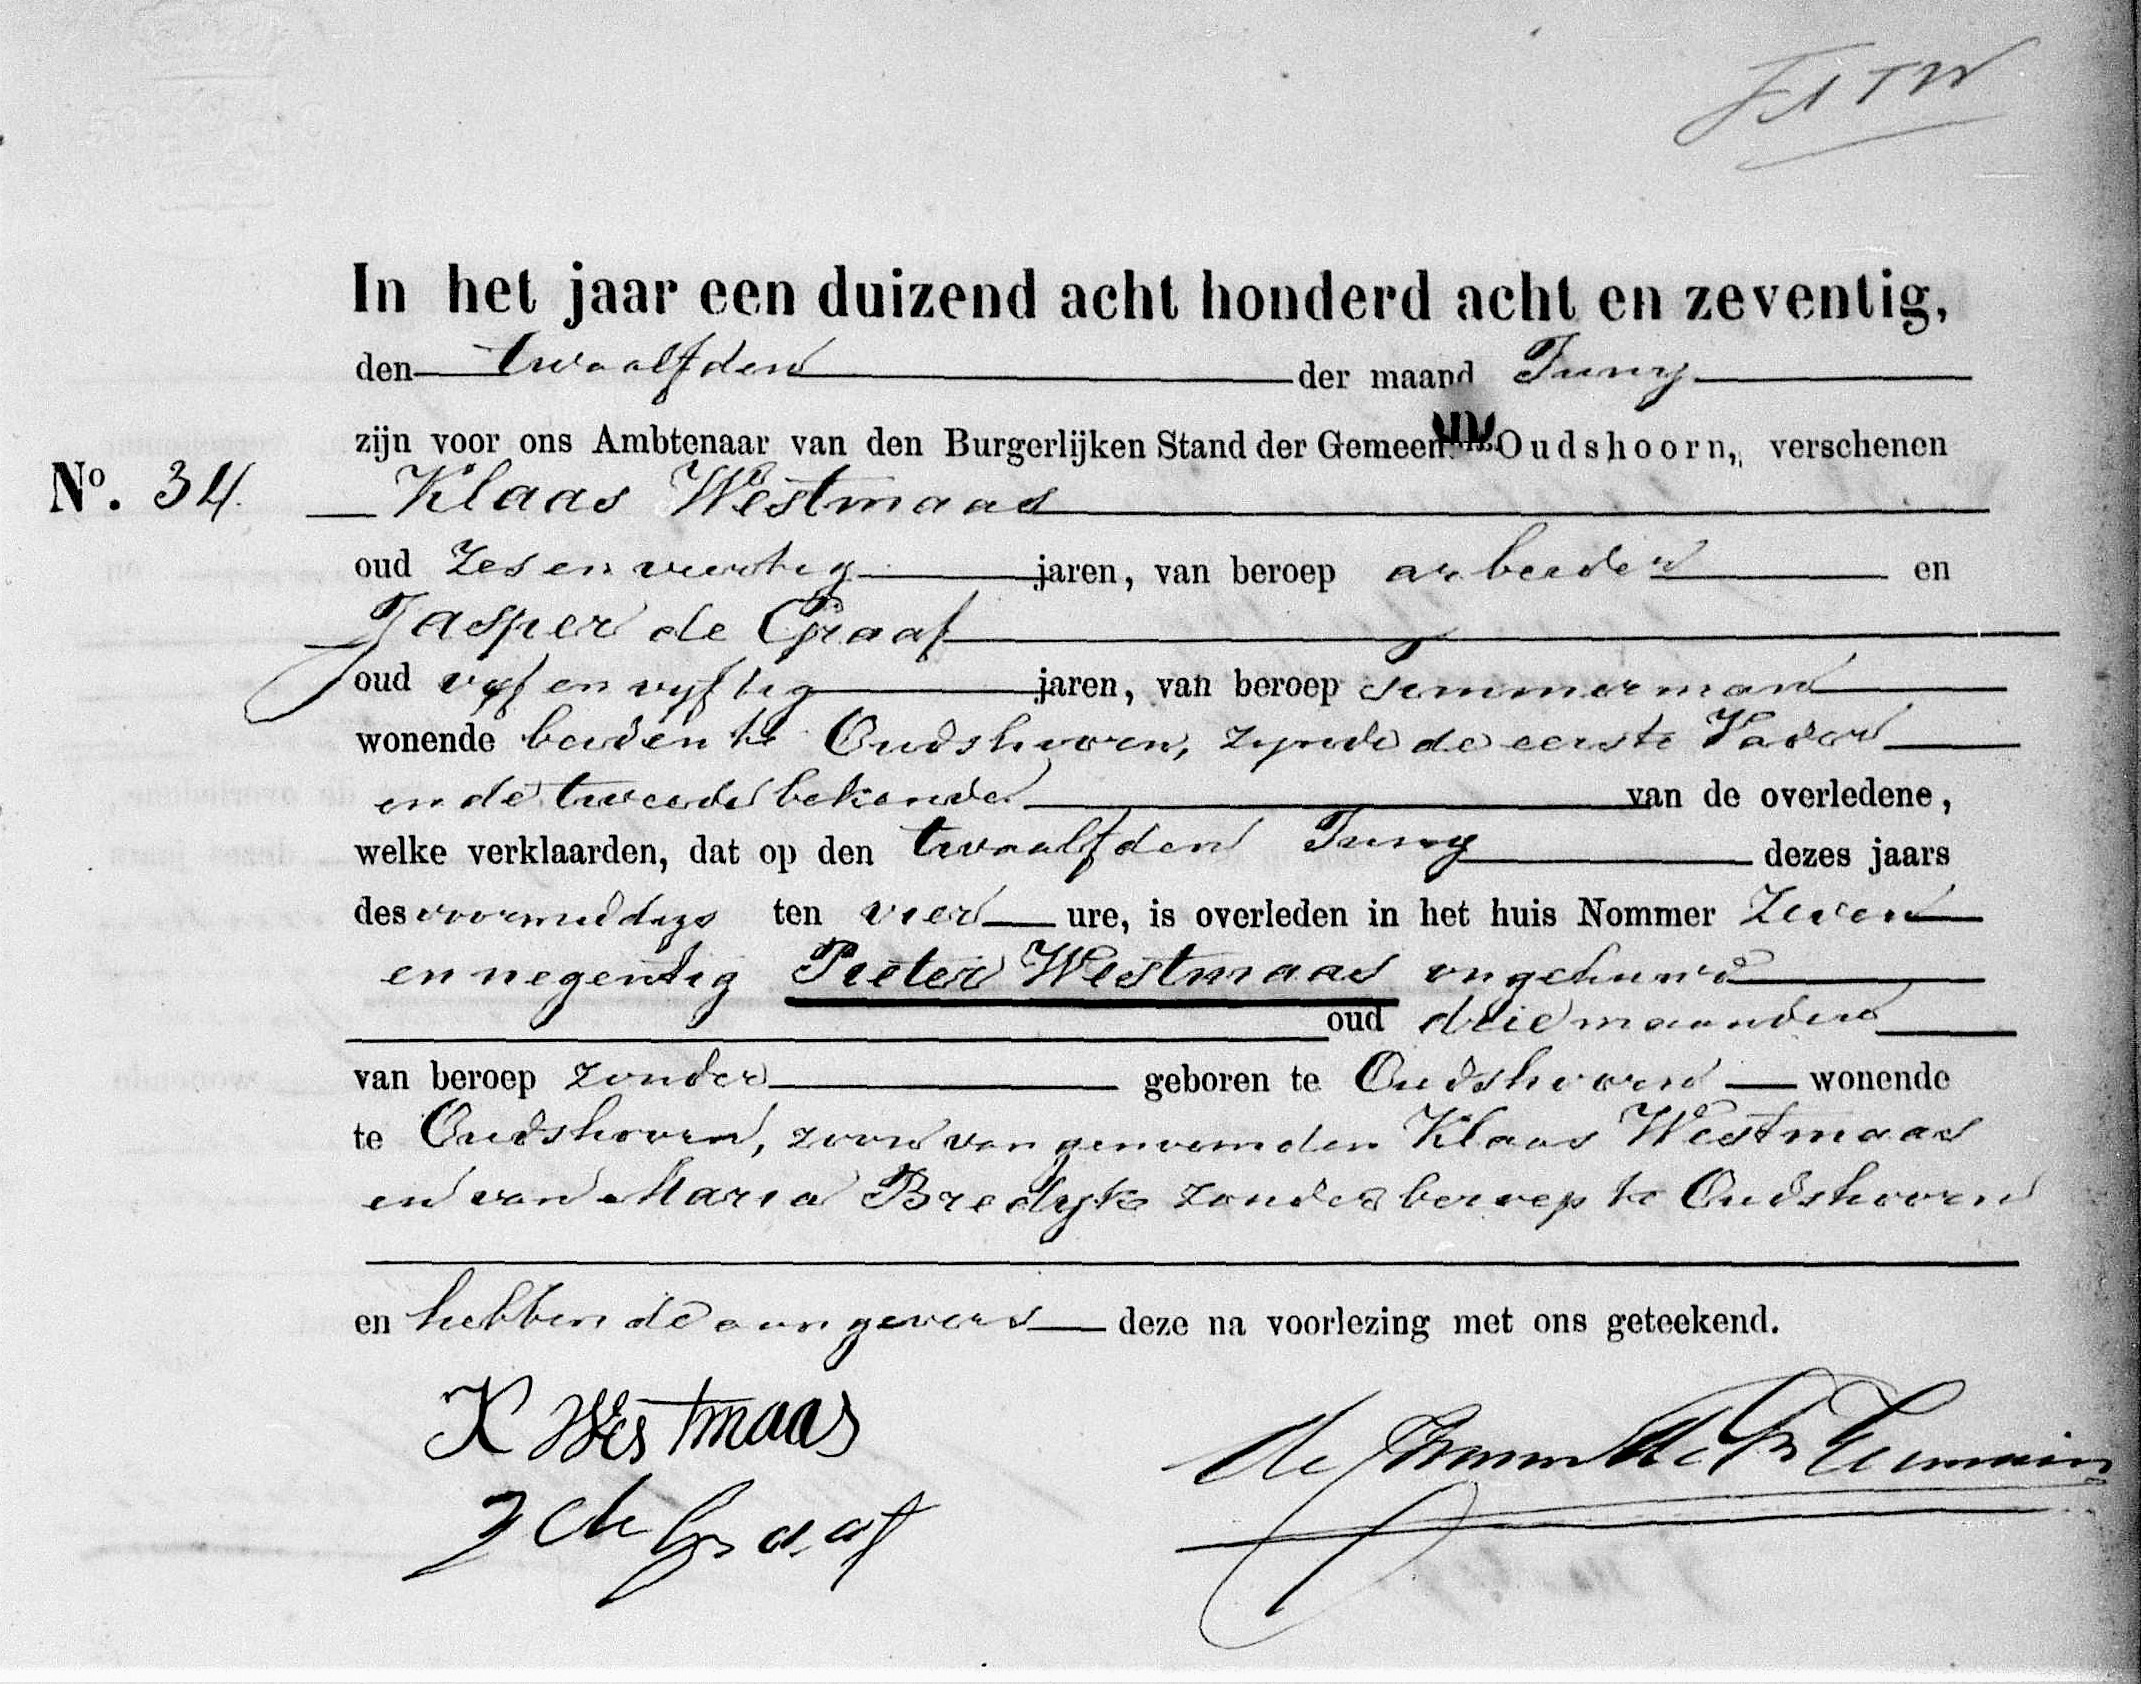 In het jaar een duizend acht honderd acht en zeventig,
den twaalfden der maand Juny
zijn voor ons Ambtenaar van den Burgerlijken Stand der Gemeente Oudshoorn, verschenen
No. 34. Klaas Westmaas
oud zes en veertig jaren, van beroep arbeider en
Jasper de Graaf
oud vyf en vyftig jaren, van beroep Timmerman
wonende beiden te Oudshoorn, zynde de eerste Vader
en de tweede bekende van de overledene,
welke verklaarden, dat op den twaalfden Juny dezes jaars
des voormiddags ten vier ure, is overleden in het huis Nommer zeven
en negentig Pieter Westmaas ongehuwd
oud drie maanden
van beroep zonder geboren te Oudshoorn wonende
te Oudshoorn, zoon van genoemden Klaas Westmaas
en van Maria Bredyk zonder beroep te Oudshoorn
en hebben de aangevers deze na voorlezing met ons geteekend.
K Westmaas
J de Graaf